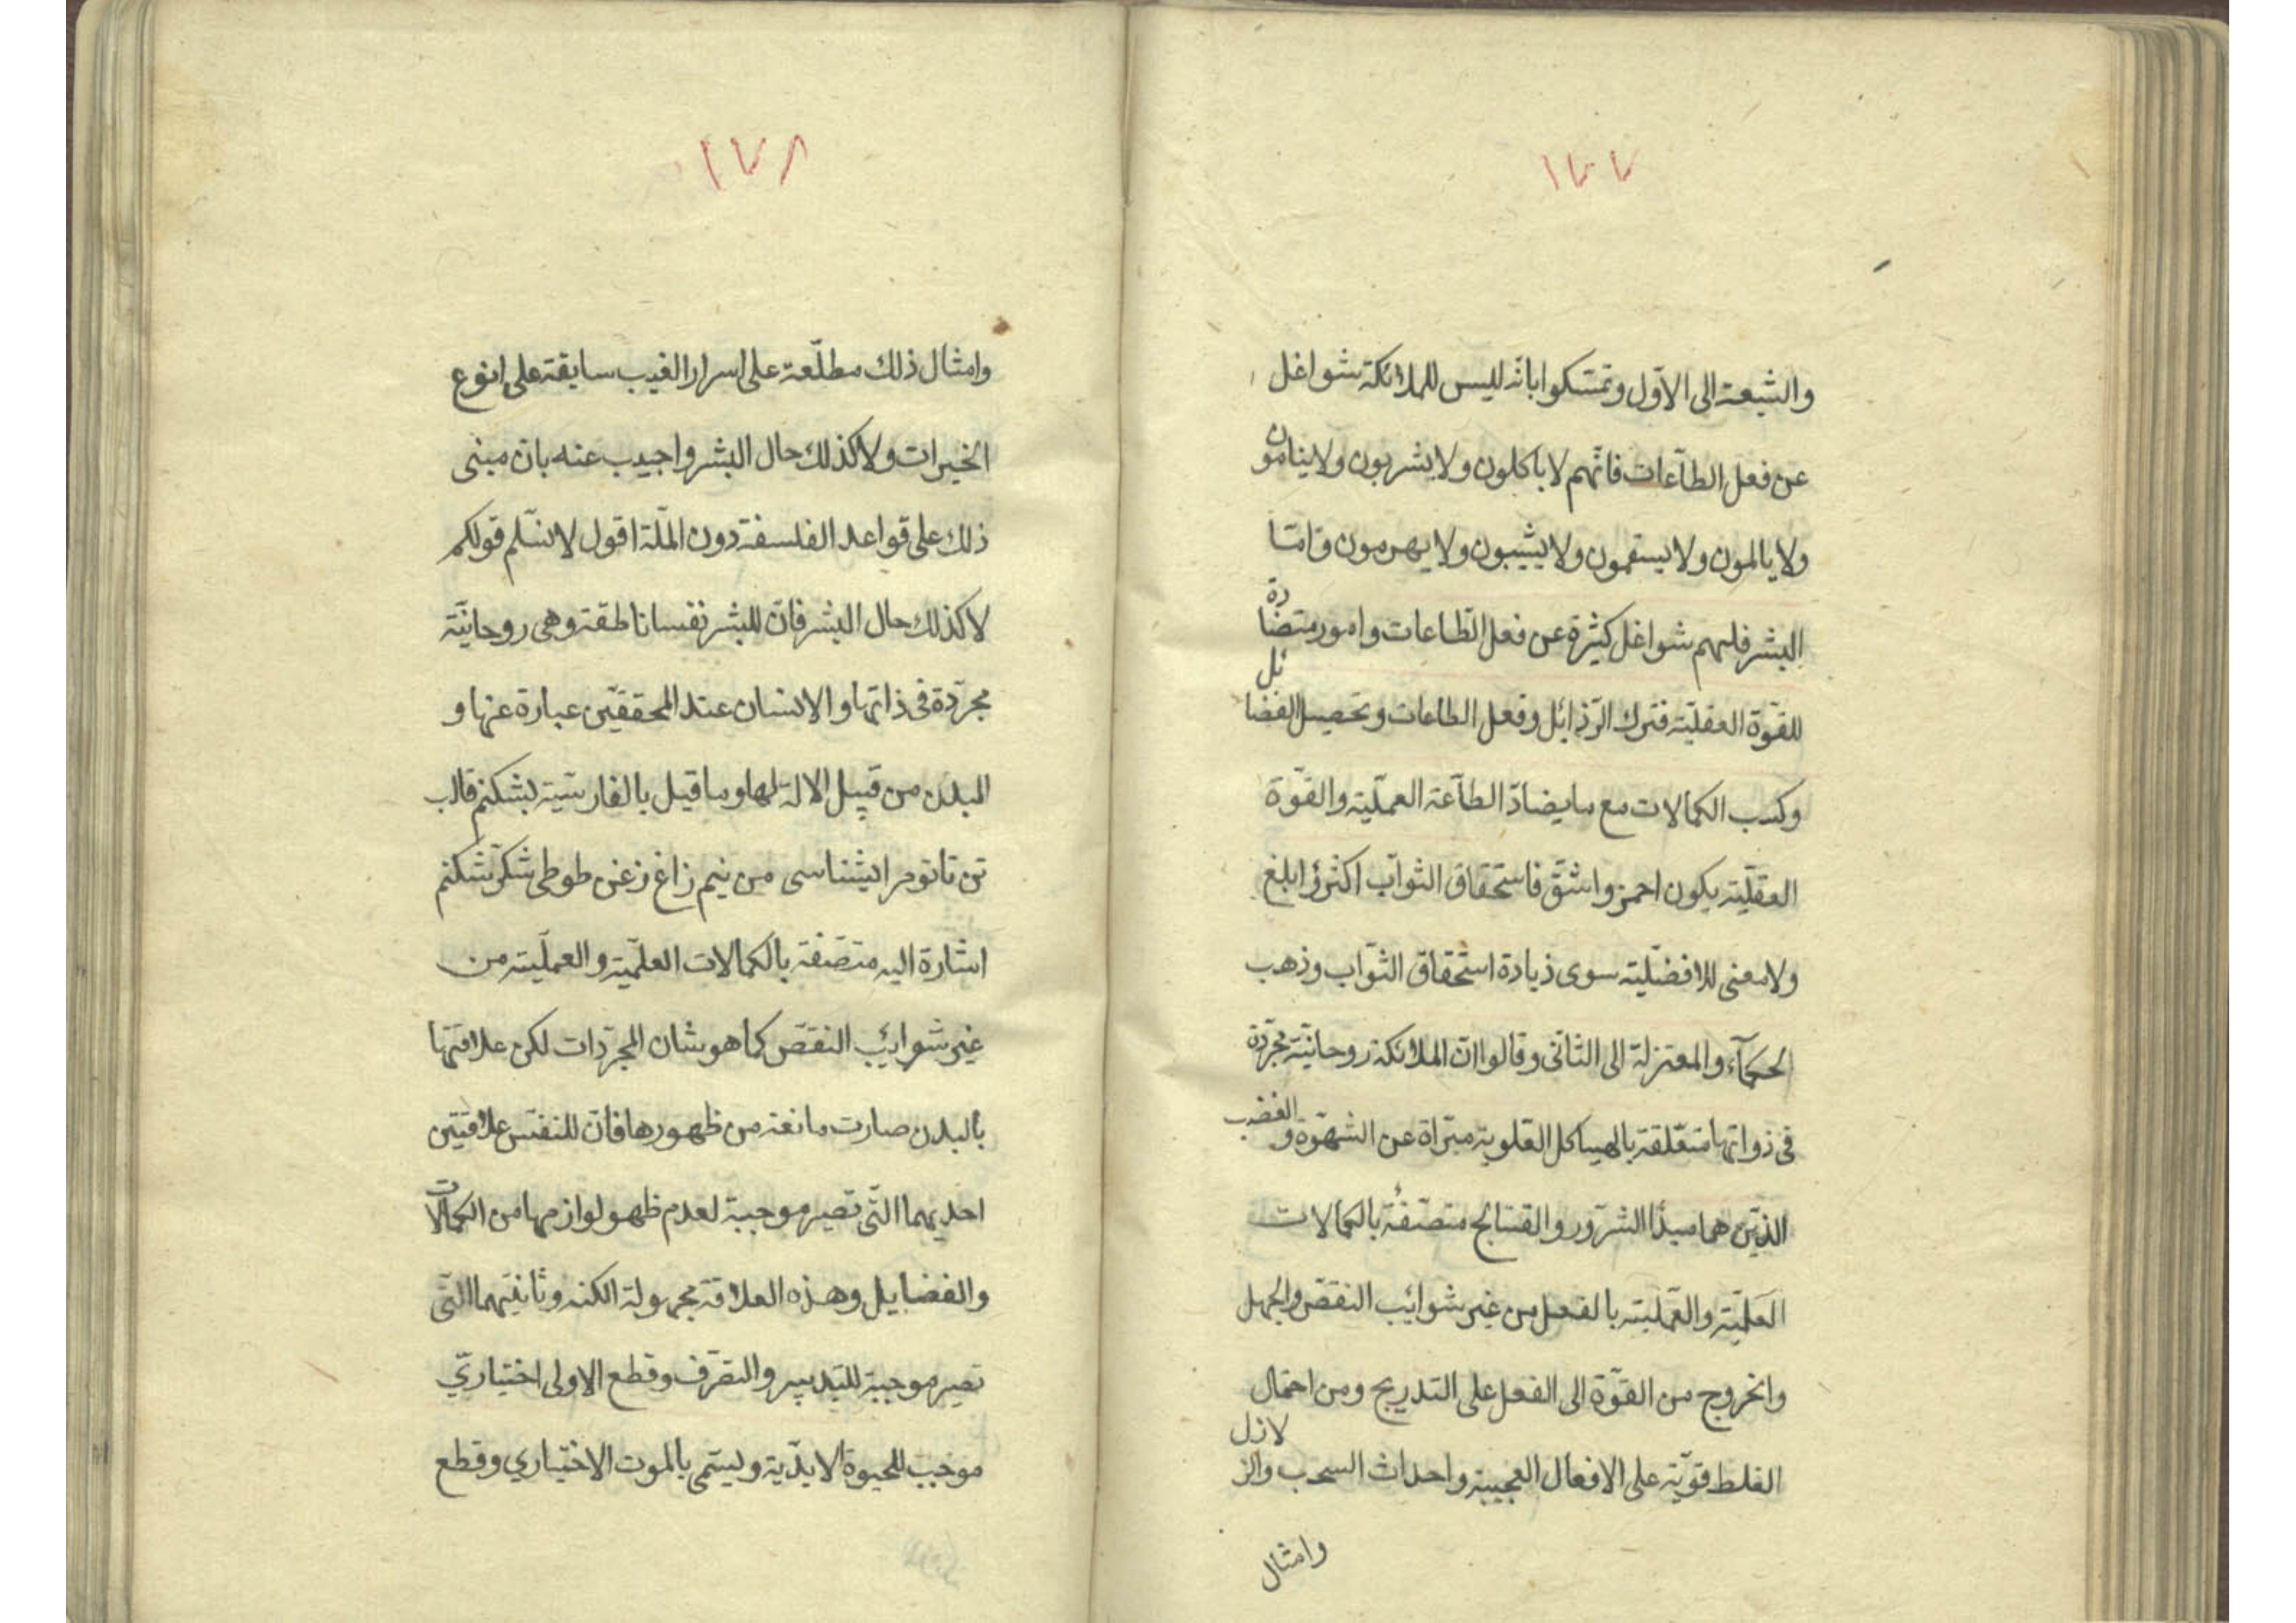 ١٧٧
والشیعة الی الاوّل وتمسّکوا بانّه لیس للملائکة شواغل
عن فعل الطاعات فانّهم لا یاکلون ولا یشربون ولا ینامون
ولا یالمون ولا یسقمون ولا یشیبون ولا یهرمون وامّا
البشر فلهم شواغل کثیرة عن فعل الطّاعات وامور متضادة
للقوّة العقلیّة فترك الرّذائل وفعل الطاعات وتحصیل الفضائل
وکسب الکمالات مع ما یضادّ الطآعة العملّیة والقوّة
العقلّیة یکون احمز واشقّ فاستحقاق الثوآب اکثر وابلغ
ولا معنی للافضلیّة سوی ذیادة استحقاق الثوّاب وذهب
الحکمآء والمعتزلة الی الثانی وقالوا انّ الملائکة روحانیّة مجرّدة
فی ذواتها متعّلقة بالهیاکل العلویة مبّراة عن الشهوّة والغضب
الذیّن هما مبدأ الشرّور والقبّائح متصّفة بالکمالات
العلمیّة والعمّلیة بالفعل من غیر شوائب النقصّ والجهل
والخروج من القوّة الی الفعل علی التدریج ومن احتمال
الغلط قویّة علی الافعال العجیبة واحداث السحب والزلازل
وامثال
١٧٨
وامثال ذلك مطلّعة علی اسرار الغیب سابقة علی انوع
الخیرات ولا کذلك حال البشر واجیب عنه بان مبنی
ذلك علی قواعد الفلسفة دون الملّة اقول لا نسّلم قولکم
لا کذلك حال البشر فانّ للبشر نفسا ناطقة وهی روحانیّة
مجرّدة فی ذاتها والانسان عند المحققیّن عبارة عنها و
البدن من قبیل الالة لها وما قیل بالفارسیّة بشکنم قالب
تن تا تو مرا بشناسی من نیم زاغ زغن طوطی شکرّ شکنم
اشارة الیه متصّفة بالکمالات العلمّیة والعملّیة من
غیر شوائب النقصّ کما هو شان المجرّدات لکن علاقتها
بالبدن صارت مانعة من ظهورها فانّ للنفس علاقتین
احدیهما التّی تصیر موجبة لعدم ظهو لوازمها من الکمالات
والفضایل وهذه العلاقة مجهولة الکنه وثانیتهما التّی
تصیر موجبة للتدبیر والتصّرف وقطع الاولی اختیاریّ
موجب للحیوة الابدّیة ویسمّی بالموت الاختیاری وقطع